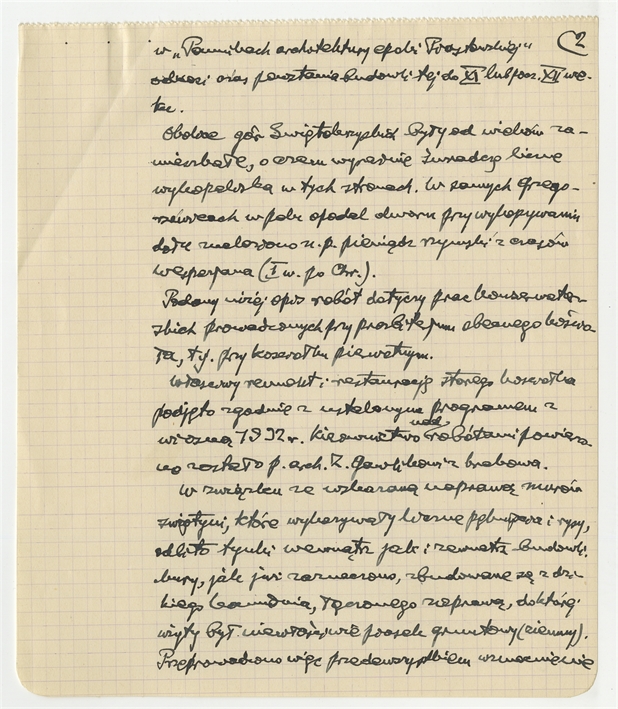 2
w „Pomnikach architektury epoki Piastowskiej"
odnosi czas powstania budowli tej do XI lub pocz. XII wie-
ku.
Okolice gór Świętokrzyskich były od wieków za-
mieszkałe, o czem wyraźnie świadczą liczne
wykopaliska w tych stronach. W samych Grzego-
rzewicach w polu opodal dworu przy wykopywaniu
dołu znaleziono n. p. pieniądz rzymski z czasów
Wespazjana (I w. po Chr.).
Podany niżej opis robót dotyczy prac konserwator-
skich prowadzonych przy prezbiterjum obecnego kościo-
ła, tj. przy kościółku pierwotnym.
Właściwy remont i restaurację starego kościółka
podjęto zgodnie z ustalonym programem z
wiosną 1932 r. Kierownictwo nad robótami powierzo-
no zostało p. arch. Z. Gawlikowi z Krakowa.
W związku ze wskazaną naprawą murów
świątyni, które wykazywały liczne pęknięcia i rysy,
odbito tynki wewnątrz jak i zewnątrz budowli.
Mury, jak już zaznaczono, zbudowane są z dzi-
kiego kamienia, łączonego zaprawą, do której
użyty był niewłaściwie piasek gruntowy (ziemny).
Przeprowadzono więc przedewszystkiem wzmocnienie